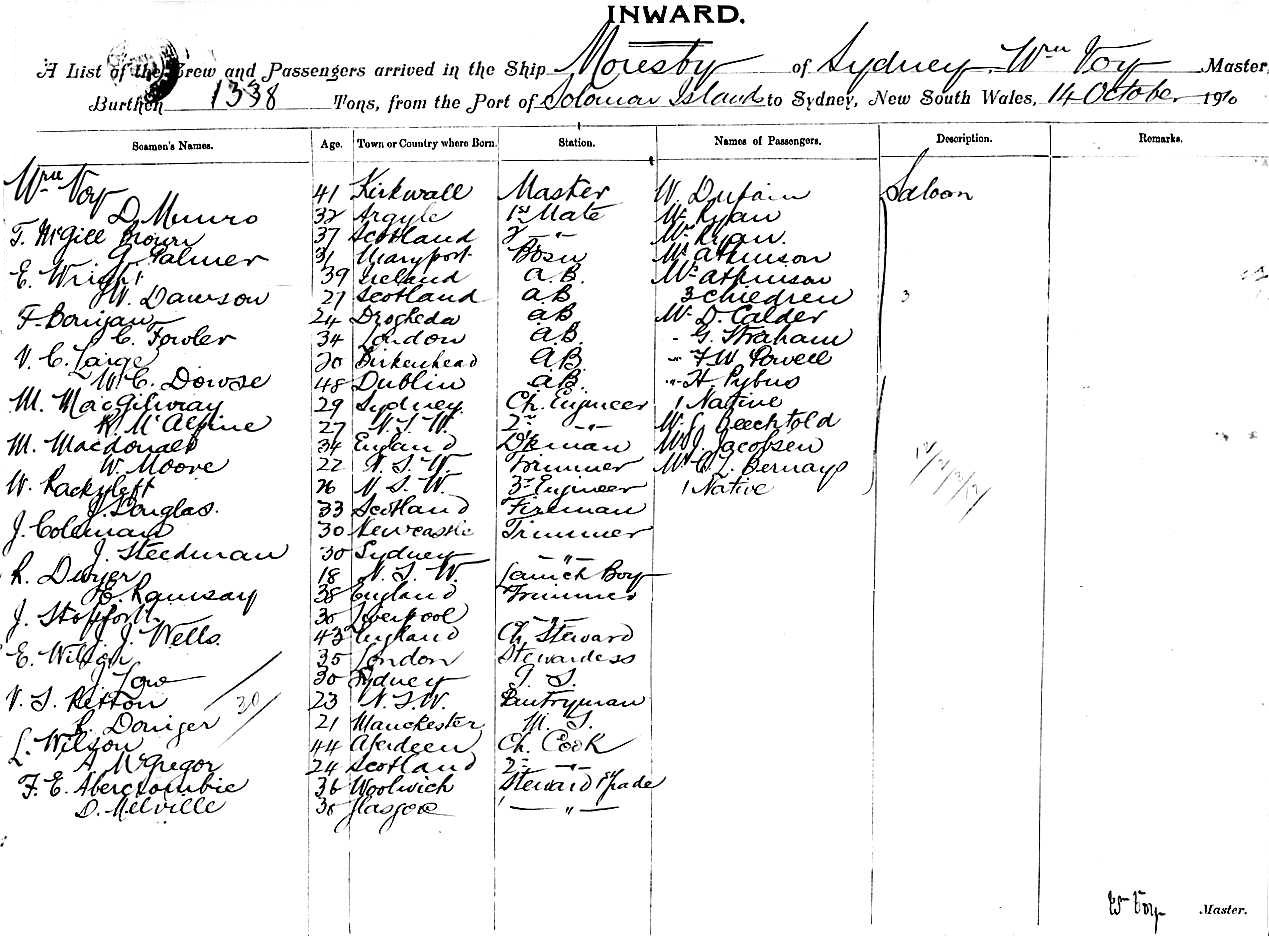 INWARD.
A List of the Crew and Passengers arrived in the Ship Moresby of Sydney. Wm Voy Master,
Burthen 1338 Tons, from the Port of Solomon Islands to Sydney, New South Wales, 14 October 1910
Seamen's Names. Age. Town or Country where Born. Station. Names of Passengers. Description. Remarks.
Wm Voy 41 Kirkwall Master W. Dupain Saloon
D. Munro 32 Argyle 1st Mate Mr Ryan
F. McGill Brown 37 Scotland 2 " Mrs Ryan.
G. Palmer 31 Maryport Bosn Mr Atkinson
E. Wright 39 Ireland A.B. Mrs Atkinson
W. Dawson 27 Scotland AB 3 Children 3
F. 24 Drogheda AB Mr D. Calder
C. Fowler 34 London A.B. " G. Straham
V. C. Large 20 Birkenhead A.B. " F. W. Powell
W. C. Dowse 48 Dublin AB. " H. Pybus
M. MacGilvray 29 Sydney Ch. Engineer 1 Native
McAlpine 27 N. S. W. 2nd " Beechtold
M. Macdonald 34 England D'kman J. Jacobsen
W. Moore 22 N. S. W. Trimmer Mr C. L. Bernays
W. 26 N. S. W. 3rd Engineer 1 Native
J. Douglas. 33 Scotland Fireman
J. Coleman 30 Newcastle Trimmer
J. Steedman 30 Sydney "
R. Dwyer 18 N. S. W. Launch Boy
E. Ramsay 38 England Trimmer
J. Stopforth 30 Liverpool "
J. Wells. 43 England Ch. Steward
E. Wilson 35 London Stewardess
J. Low 30 Sydney S.
V. S. 23 N.S.W. Pantryman
30
R. Doniger 21 Manchester M. S.
L. Wilson 44 Aberdeen Ch. Cook
A. McGregor 24 Scotland 2nd "
F. E. Abercrombie 36 Woolwich Steward
D. Melville 30 Glasgow "
W Voy Master.